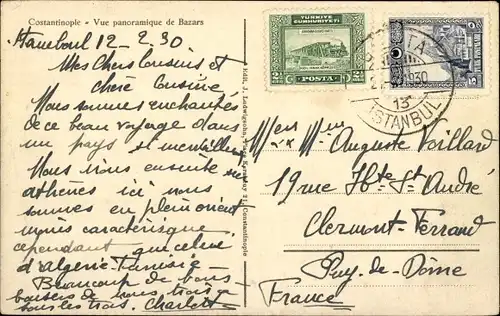 Constantinople - Vue panoramique de Bazars
Stamboul 12-2.30
Mes Chers Cousins et
chère Cousine
Nous sommes enchantés
de ce beau voyage dans
un pays si merveilleux
Nous irons ensuite sur
athènes ici nous
sommes en plein orient
moins caractérisque
cependant que celui
d'algérie-Tunisie
Beaucoup de bons
baisers de nous trois à
tous les trois. Charlott
Edit. J. Ludwigsohn, Constantinople
TÜRKİYE
CUMHURİYETİ
2½ G. POSTA
1930
13
ISTANBUL
Auguste Voillard
19 rue Hte St André
Clermont-Ferrand
Puy-de-Dôme
France